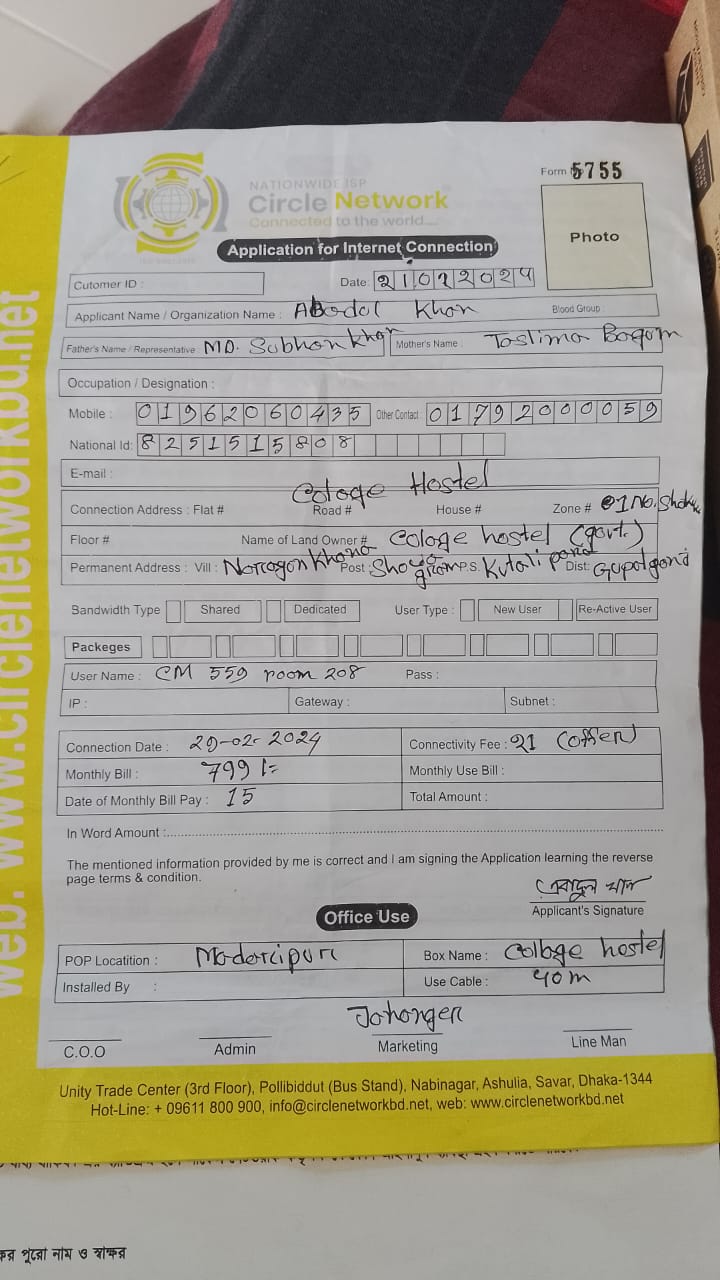 Form No 5755
NATIONWIDE ISP
Circle Network
Connected to the world....
Photo
Application for Internet Connection
Cutomer ID :
Date:
Applicant Name / Organization Name : Abodol Khan Blood Group :
Father's Name / Representative MD. Subhan khan Mother's Name : Taslima Bogum
Occupation / Designation :
Mobile : 01962060435 Other Contact : 01792000059
National Id: 8251515808
E-mail :
Cologe Hostel
Connection Address : Flat # Road # House # Zone #
Floor # Name of Land Owner # Cologe hostel (govt.)
Permanent Address : Vill : Post : P.S. Dist:
Bandwidth Type Shared Dedicated User Type : New User Re-Active User
Packeges
User Name : CM 559 room 208 Pass :
IP : Gateway : Subnet :
Connection Date : 29-02-2024 Connectivity Fee : 21 (offer)
Monthly Bill : 799/= Monthly Use Bill :
Date of Monthly Bill Pay : 15 Total Amount :
In Word Amount :
The mentioned information provided by me is correct and I am signing the Application learning the reverse
page terms & condition.
এবাদুল খান
Applicant's Signature
Office Use
POP Locatition : Madaripur Box Name : Collage hostel
Installed By : Use Cable : 40m
Jahanger
C.O.O Admin Marketing Line Man
Unity Trade Center (3rd Floor), Pollibiddut (Bus Stand), Nabinagar, Ashulia, Savar, Dhaka-1344
Hot-Line: + 09611 800 900, info@circlenetworkbd.net, web: www.circlenetworkbd.net
web: www.circlenetworkbd.net
পুরো নাম ও স্বাক্ষর